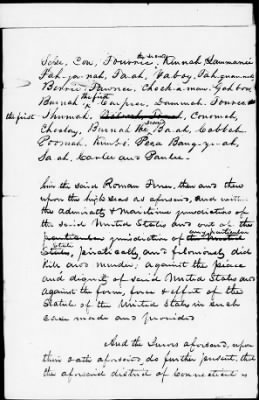 the second
Sese, Con, Fournie, Kinnah Lammanee
Fah-ja-nah, Faah, Yaboy, Fah-quannah
Berrie Fawnee, Chock-a-maw. Gahbow
the first
Burnah Carpree, Dammah. Fourree
the first Shumah. Conomah,
second
Choolay, Burnah the Baah, Cabbah
Poomah, Kimbo. Peea Bang-ye-ah,
Saah, Carlee and Paulee.
him the said Roman Ferrer, then and there
upon the high seas as aforesaid, and within
the admiralty & maritime jurisdiction of
the said United States and out of the
any particular
particular jurisdiction of the United
State
States, piratically, and feloniously did
kill and murder, against the peace
and dignity of said United States and
against the form, force & effect of the
Statute of the United States in such
case made and provided
And the Jurors aforesaid, upon
their oath aforesaid, do further present, that
the aforesaid district of Connecticut is